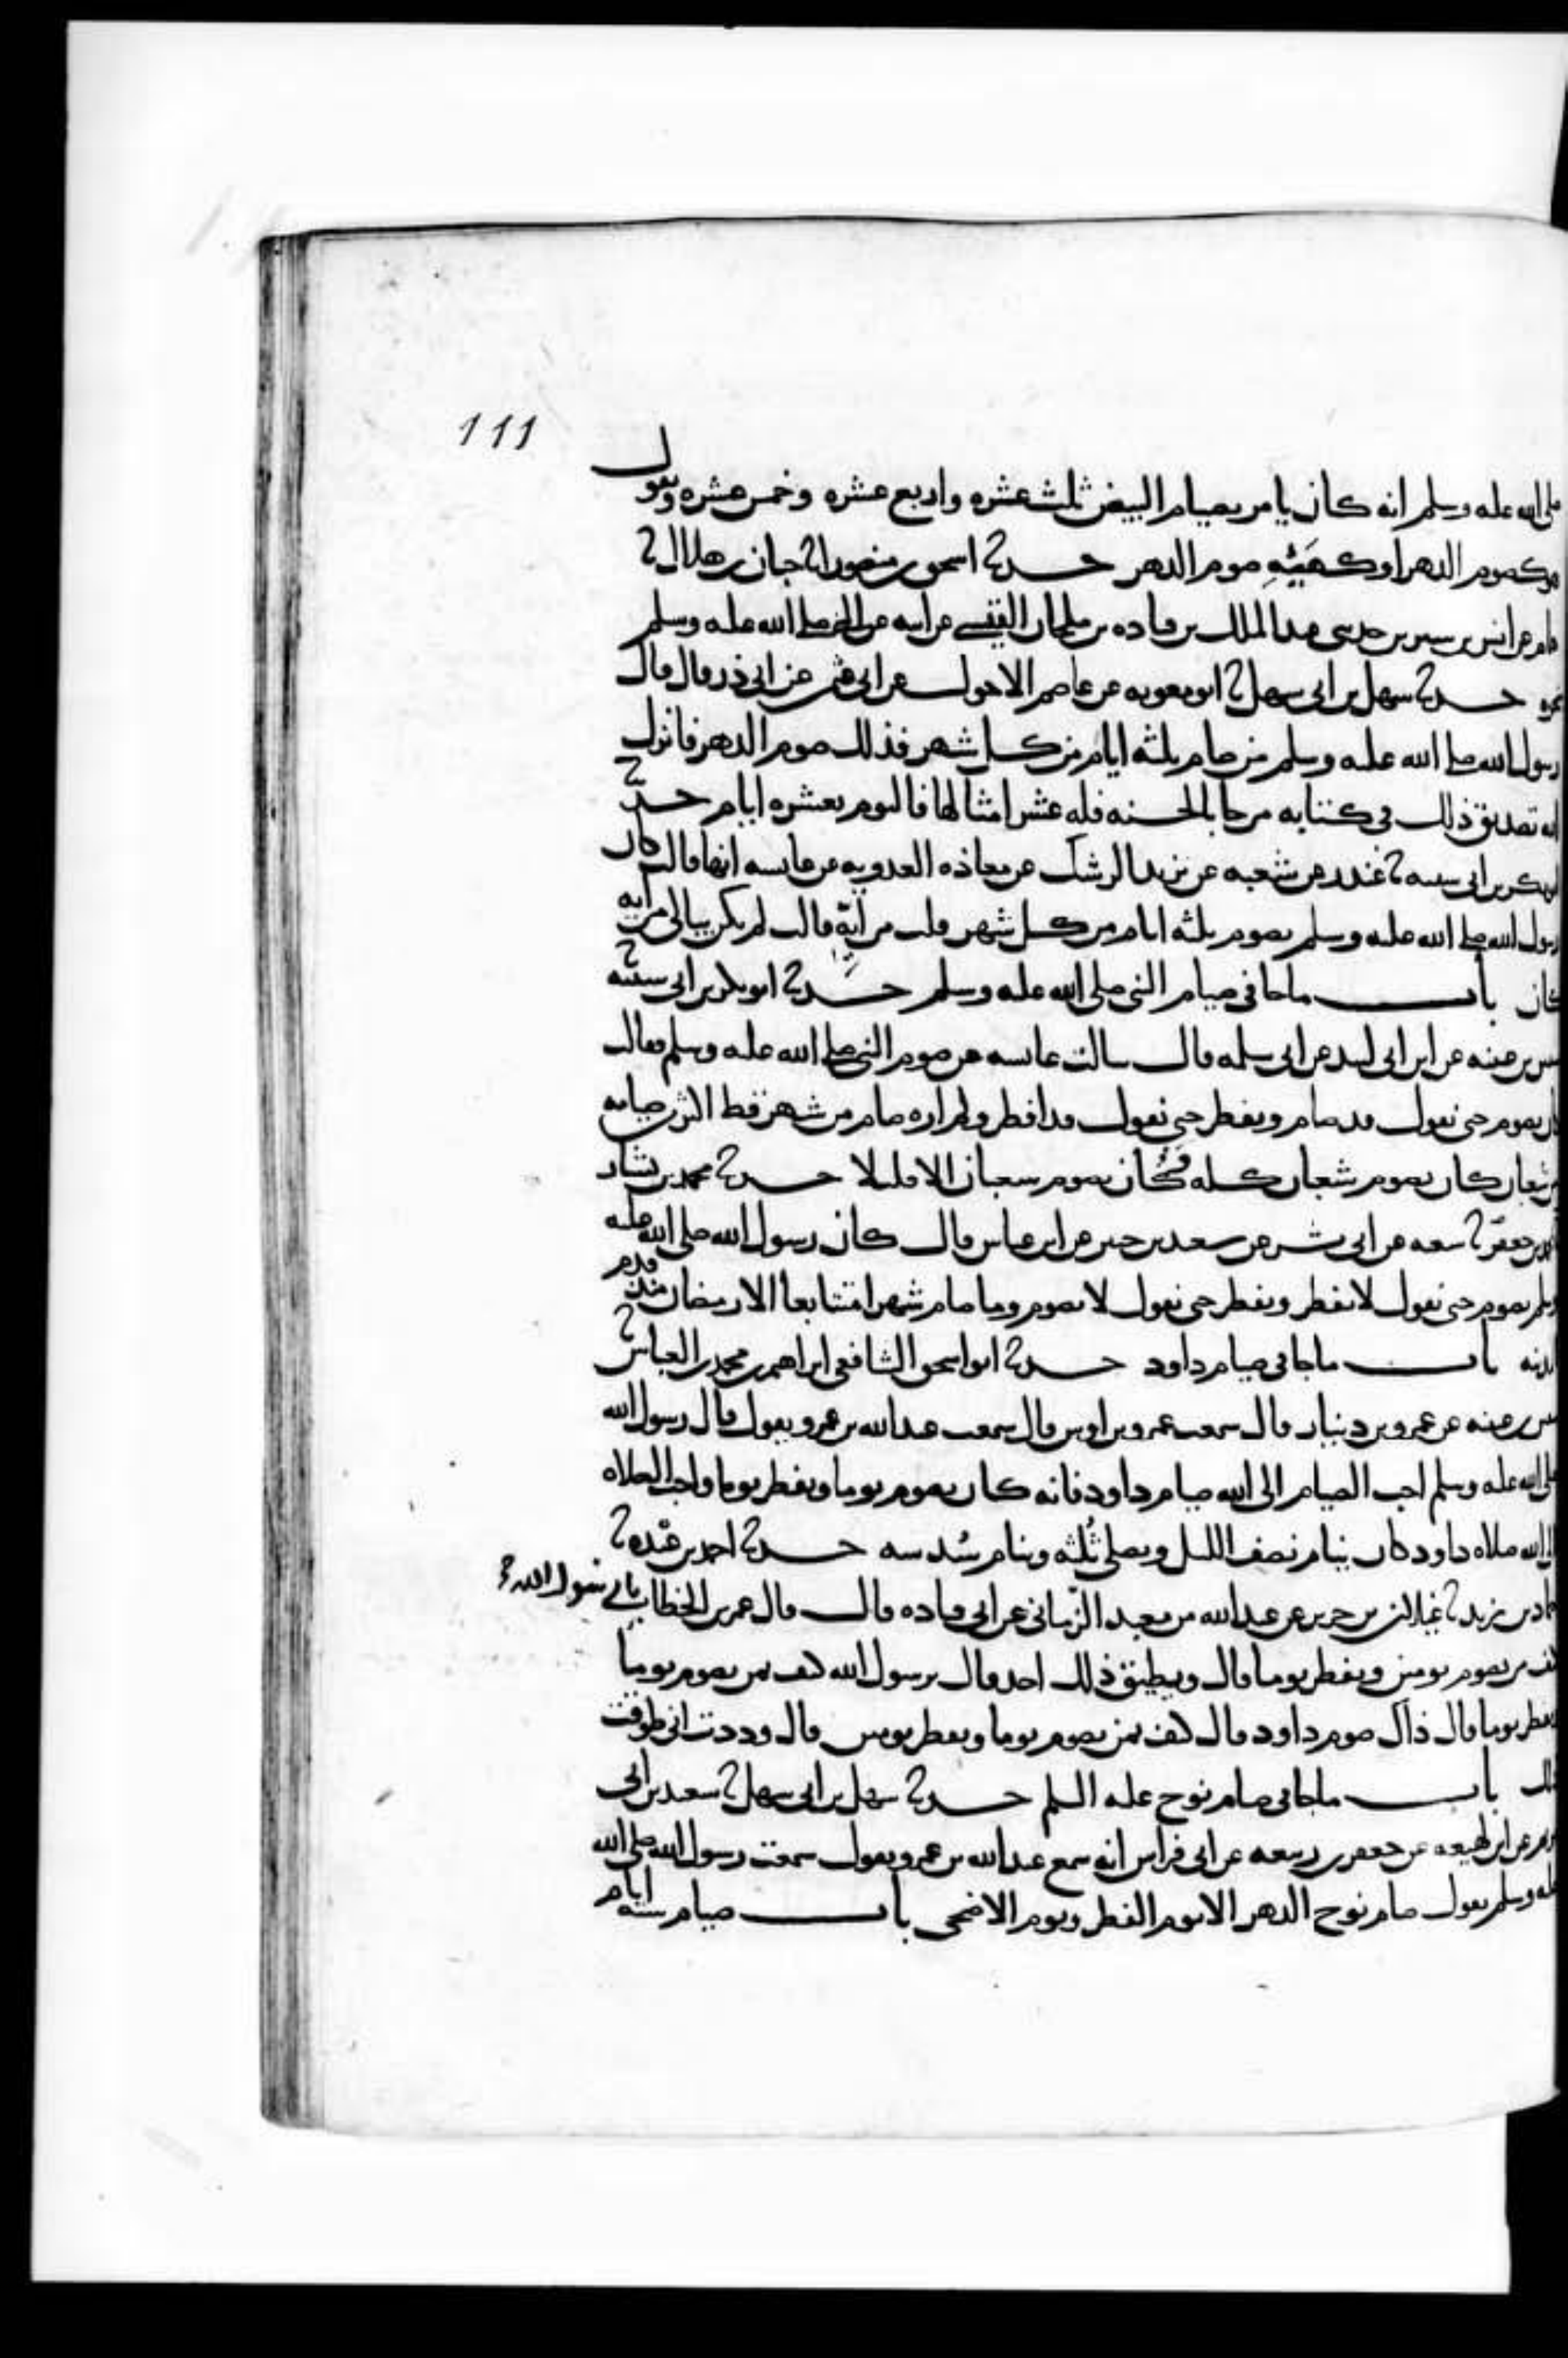 111
صلى الله عليه وسلم انه كان يامر بصيام البيض ثلث عشره واربع عشره وخمس عشره ويقول
هو كصوم الدهر او كهيئه صوم الدهر حدثنا اسحق بن منصور انا حبان بن هلال نا
همام عن انس بن سيرين حدثني عبد الملك بن قتاده بن ملحان القيسي عن ابيه عن النبي صلى الله عليه وسلم
نحوه حدثنا سهل بن ابي سهل نا ابو معويه عن عاصم الاحول عن ابي عثمن عن ابي ذر قال قال
رسول الله صلى الله عليه وسلم من صام ثلثه ايام من كل شهر فذلك صوم الدهر فانزل
الله تصديق ذلك في كتابه من جا بالحسنه فله عشر امثالها فاليوم بعشره ايام حدثنا
ابو بكر بن ابي شيبه نا غندر عن شعبه عن يزيد الرشك عن معاذه العدويه عن عايشه انها قالت كان
رسول الله صلى الله عليه وسلم يصوم ثلثه ايام من كل شهر قلت من ايه قالت لم يكن يبالي من ايه
كان باب ما جا في صيام النبي صلى الله عليه وسلم حدثنا ابو بكر بن ابي شيبه نا
سفين بن عيينه عن ابن ابي لبيد عن ابي سلمه قال سالت عايشه عن صوم النبي صلى الله عليه وسلم فقالت
كان يصوم حتى نقول قد صام ويفطر حتى نقول قد افطر ولم اره صام من شهر قط اكثر من صيامه
من شعبان كان يصوم شعبان كله وكان يصوم شعبان الا قليلا حدثنا محمد بن بشار
نا محمد بن جعفر نا شعبه عن ابي بشر عن سعيد بن جبير عن ابن عباس قال كان رسول الله صلى الله عليه
وسلم يصوم حتى نقول لا يفطر ويفطر حتى نقول لا يصوم وما صام شهرا متتابعا الا رمضان منذ قدم
المدينه باب ما جا في صيام داود حدثنا ابو اسحق الشافعي ابراهيم بن محمد بن العباس نا
سفين بن عيينه عن عمرو بن دينار قال سمعت عمرو بن اوس قال سمعت عبد الله بن عمرو يقول قال رسول الله
صلى الله عليه وسلم احب الصيام الى الله صيام داود فانه كان يصوم يوما ويفطر يوما واحب الصلاه
الى الله صلاه داود كان ينام نصف الليل ويصلي ثلثه وينام سدسه حدثنا احمد بن عبده نا
حماد بن زيد نا غيلان بن جرير عن عبد الله بن معبد الزماني عن ابي قتاده قال قال عمر بن الخطاب يا رسول الله
كيف بمن يصوم يومين ويفطر يوما قال ويطيق ذلك احد قال يرسول الله كيف بمن يصوم يوما
ويفطر يوما قال ذاك صوم داود قال كيف بمن يصوم يوما ويفطر يومين قال وددت اني طوقت
ذلك باب ما جا في صيام نوح عليه السلم حدثنا سهل بن ابي سهل نا سعيد بن ابي
مريم عن ابن لهيعه عن جعفر بن ربيعه عن ابي فراس انه سمع عبد الله بن عمرو يقول سمعت رسول الله صلى الله
عليه وسلم يقول صام نوح الدهر الا يوم الفطر ويوم الاضحى باب صيام سته ايام